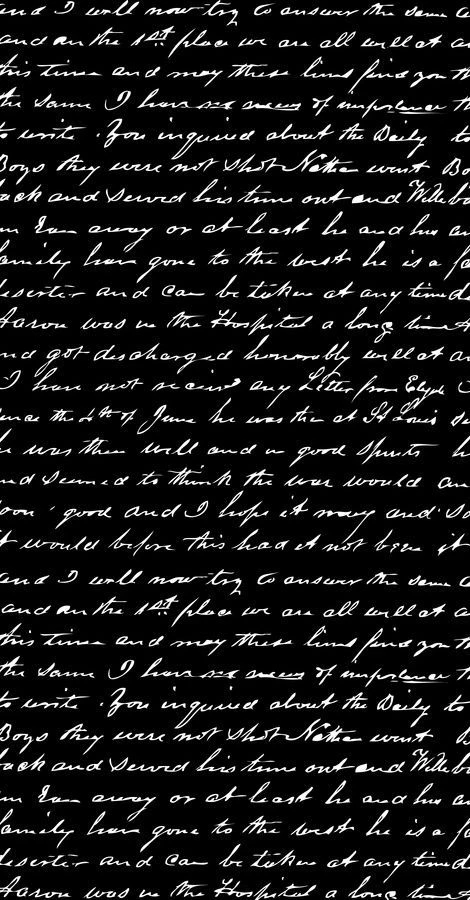 and I will now try to answer the same
and in the 1st place we are all well at
this time and may these lines find you
the same I have no news of importance
to write. You inquired about the Daily
Boys they were not shot Nathan went
back and served his time out and Will
ran away or at least he and his
family have gone to the west he is a
deserter and can be taken at any time
Aaron was in the Hospital a long time
and got discharged honorably well at
I have not received any Letter from
since the 4th of June he was then at St Louis
he was then well and in good spirits
and seemed to think the war would
soon good and I hope it may and so
it would before this had it not been it
and I will now try to answer the same
and in the 1st place we are all well at
this time and may these lines find you
the same I have no news of importance
to write. You inquired about the Daily to
Boys they were not shot Nathan went
back and served his time out and Will
ran away or at least he and his
family have gone to the west he is a
deserter and can be taken at any time
Aaron was in the Hospital a long time